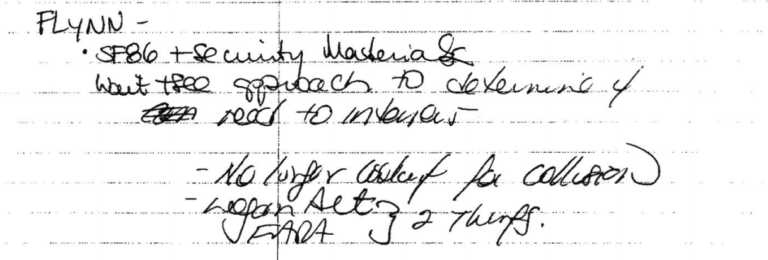 FLYNN -
• SF86 + Security Materials
Wait + see approach to determine if
need to interview
- No longer looking for collusion
- Logan Act } 2 Things.
FARA